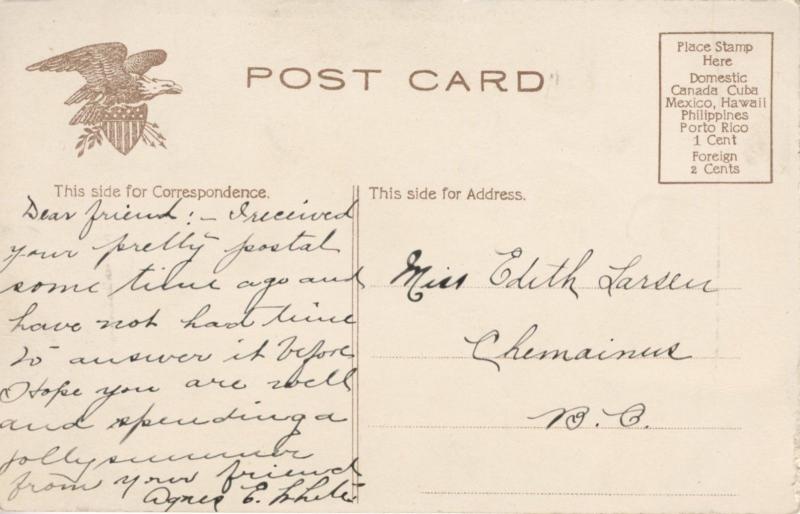 POST CARD
Place Stamp
Here
Domestic
Canada Cuba
Mexico, Hawaii
Philippines
Porto Rico
1 Cent
Foreign
2 Cents
This side for Correspondence.
Dear friend:- I received
your pretty postal
some time ago and
have not had time
to answer it before
Hope you are well
and spending a
jolly summer
from your friend
Agnes E. White.
This side for Address.
Miss Edith Larsen
Chemainus
B.C.